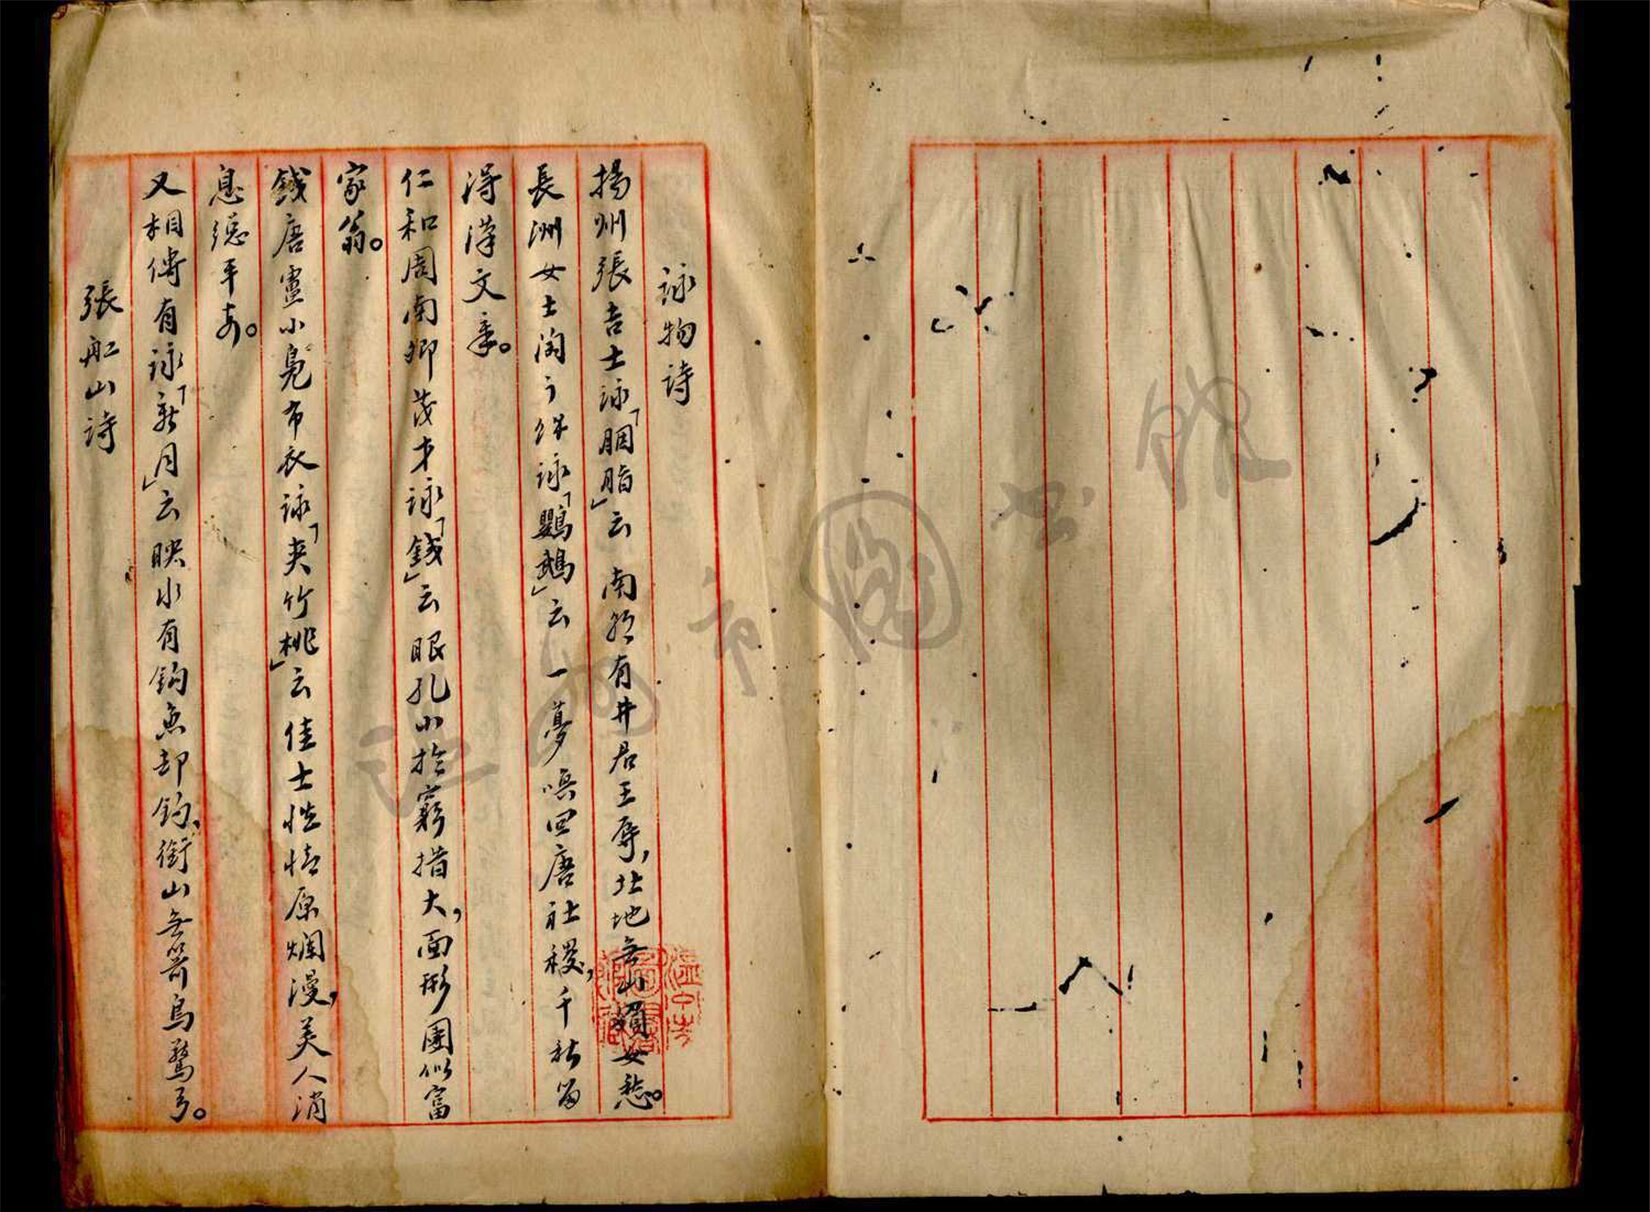 詠物詩
揚州張吉士詠「胭脂」云 南朝有井君王辱，北地無山嬪女愁。
長洲女士陶 詠「鸚鵡」云 一夢喚回唐社稷，千秋留
得漢文章。
仁和周南卿茂才詠「錢」云 眼孔小於窮措大，面形團似富
家翁。
錢唐盧小鳧布衣詠「夾竹桃」云 佳士性情原爛漫，美人消
息總平安。
又相傳有詠「新月」云 映水有鈎魚却釣，銜山無箭鳥驚弓。
張船山詩
溫州市圖書館